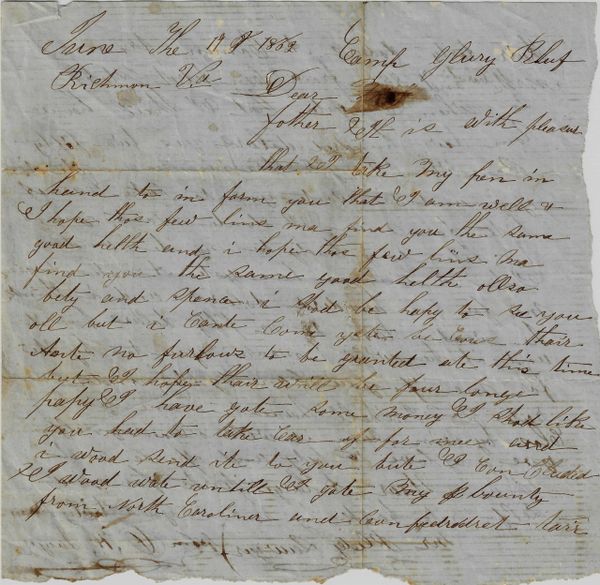 June The 19 1862 Camp Glury Bluf
Richmon Va Dear
father it is with pleasur
that I take my pen in
heand to in form you that I am well &
I hope thos few lins ma find you the same
good helth and i hope thos few liins ma
find you the same good helth ollso
bety and spence i shod be hapy to see you
oll but i cante come yete be cous thair
aarte no furlows to be granted ate this time
but I hope thair will be four longe
papy I have gote some money I shod like
you had to take car of for me and
i wood send ite to you bute I con cluded
I wood wate untill I gote my bounty
from North Caroliner and Confedrdret